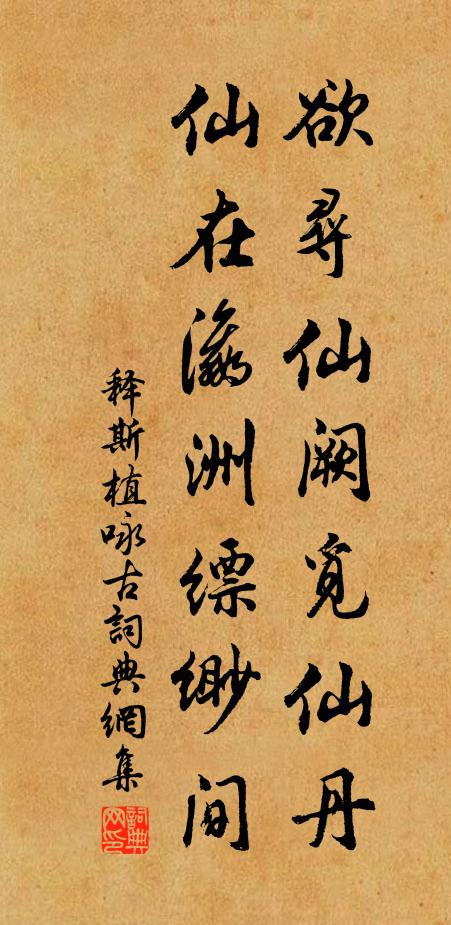 欲尋仙阙覓仙丹
仙在瀛洲缥缈间
释斯植咏古詞典網集
詞典网印